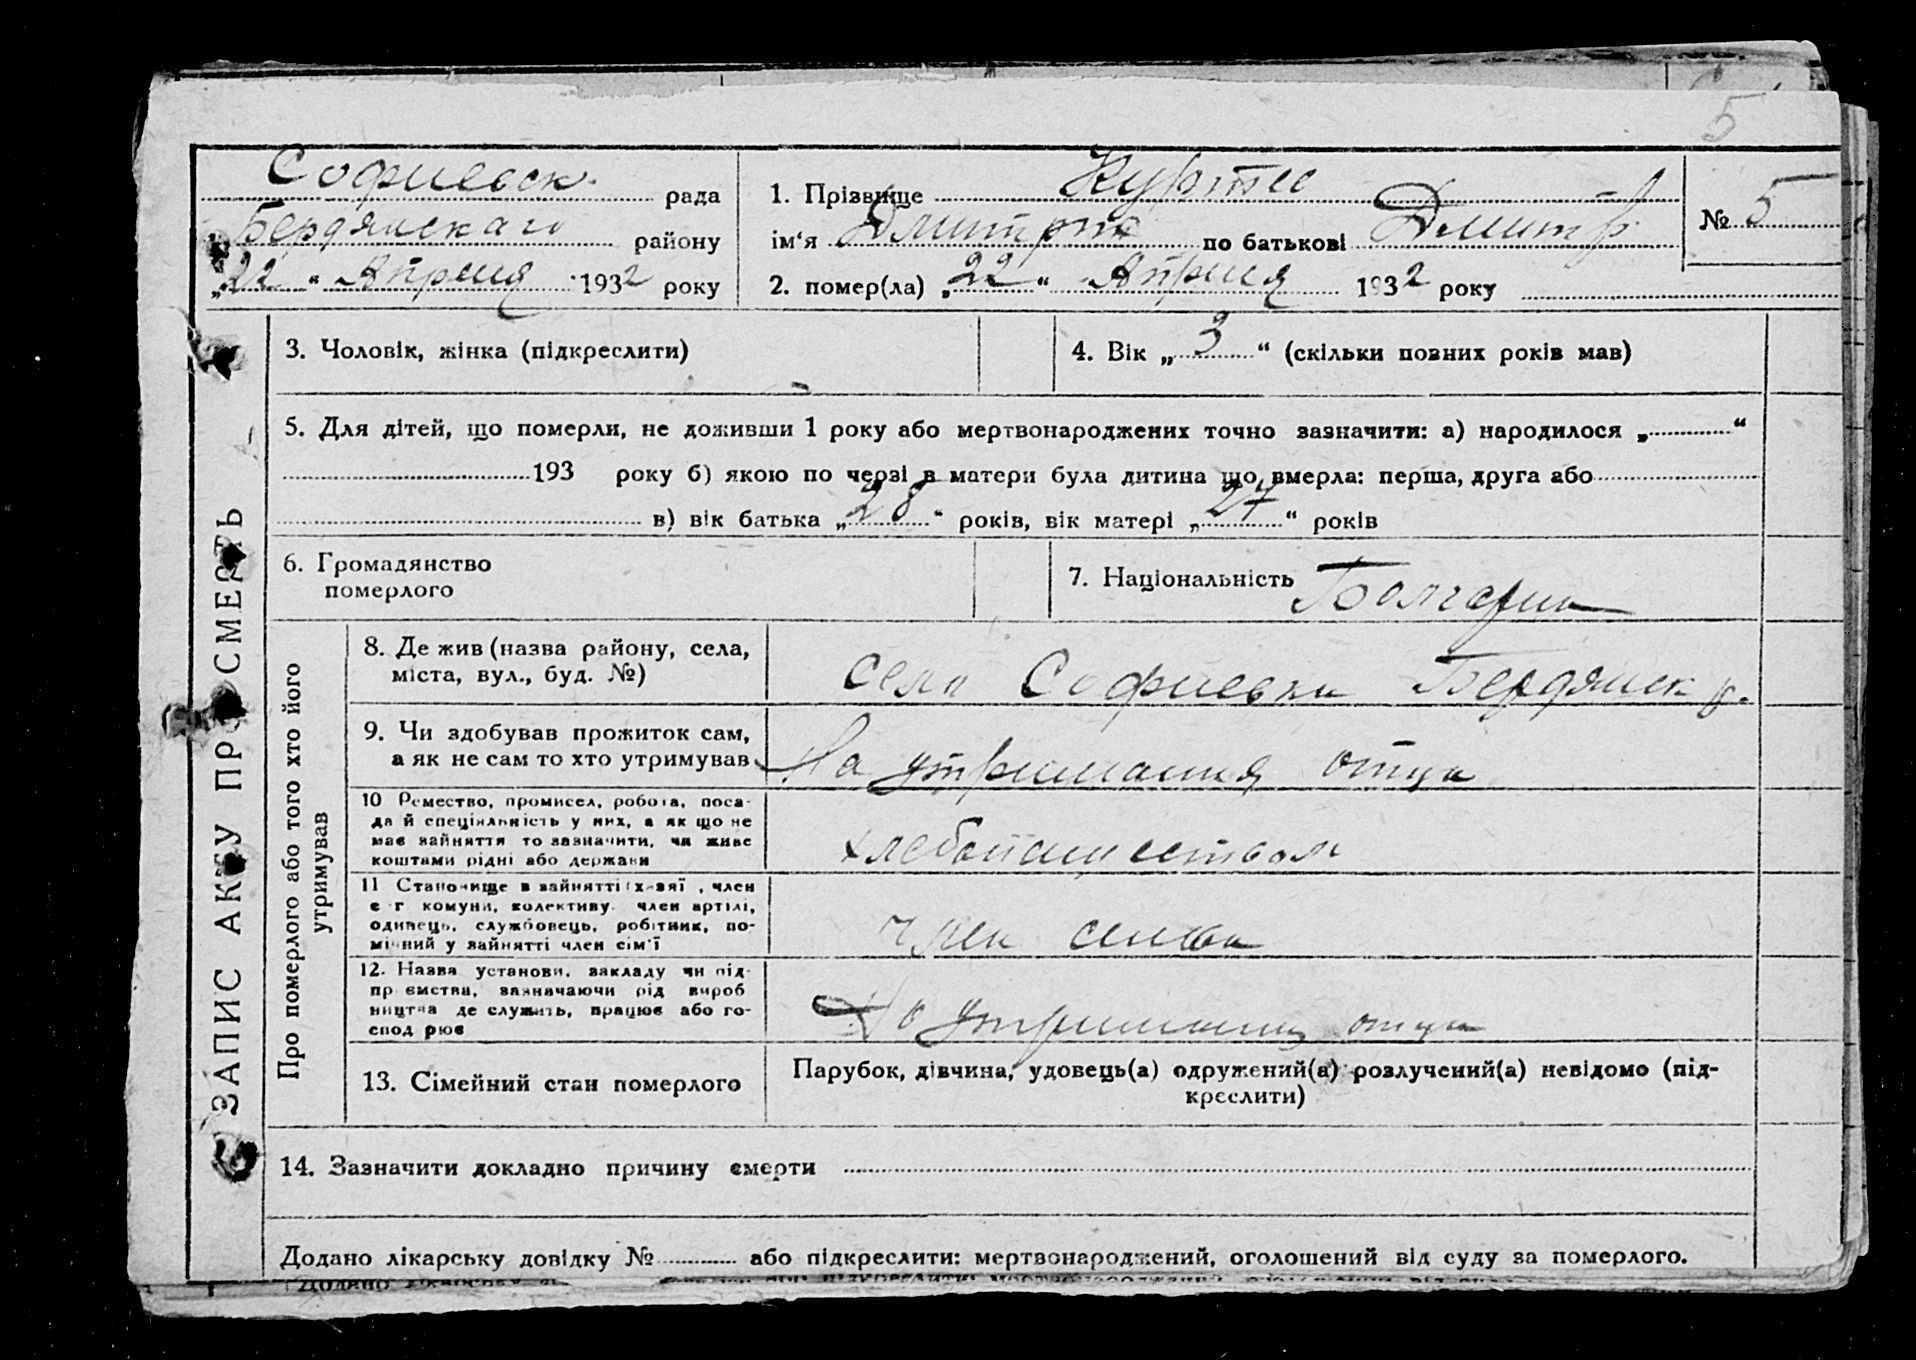 5
Софиевск. рада
Бердянскаго району
„22“ Апреля 1932 року
1. Прізвище Куртев
ім'я Дмитрий по батькові Дмитр.
№ 5
2. помер(ла) „22“ Апреля 1932 року
ЗАПИС АКТУ ПРО СМЕРТЬ
3. Чоловік, жінка (підкреслити)
4. Вік „3“ (скільки повних років мав)
5. Для дітей, що померли, не доживши 1 року або мертвонароджених точно зазначити: а) народилося „ “
193 року б) якою по черзі в матери була дитина що вмерла: перша, друга або
в) вік батька „28“ років, вік матері „27“ років
6. Громадянство
померлого
7. Національність Болгарин
Про померлого або того хто його
утримував
8. Де жив (назва району, села,
міста, вул., буд. №)
село Софиевка Бердянск р.
9. Чи здобував прожиток сам,
а як не сам то хто утримував
На утримания отца
10 Ремество, промисел, робота, поса-
да й спеціяльність у них, а як що не
має зайняття то зазначити, чи живе
коштами рідні або держави
хлебопашеством
11 Становище в зайнятті (хазяї , член
с г комуни, колективу член артілі,
одинець, службовець, робітник, по-
мічний у зайнятті член сім'ї
член семьи
12. Назва установи, закладу чи під-
пр ємства, зазначаючи рід вироб
ництва де служить, працює або го-
спод рює
На утримании отца
13. Сімейний стан померлого
Парубок, дівчина, удовець(а) одружений(а) розлучений(а) невідомо (під-
креслити)
14. Зазначити докладно причину смерти
Додано лікарську довідку № або підкреслити: мертвонароджений, оголошений від суду за померлого.